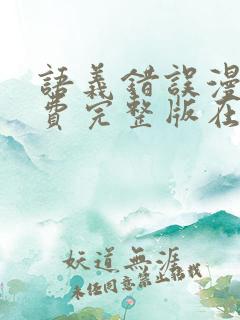 語義錯誤漫
費完整版在
妖道無涯
未經同意禁止轉載